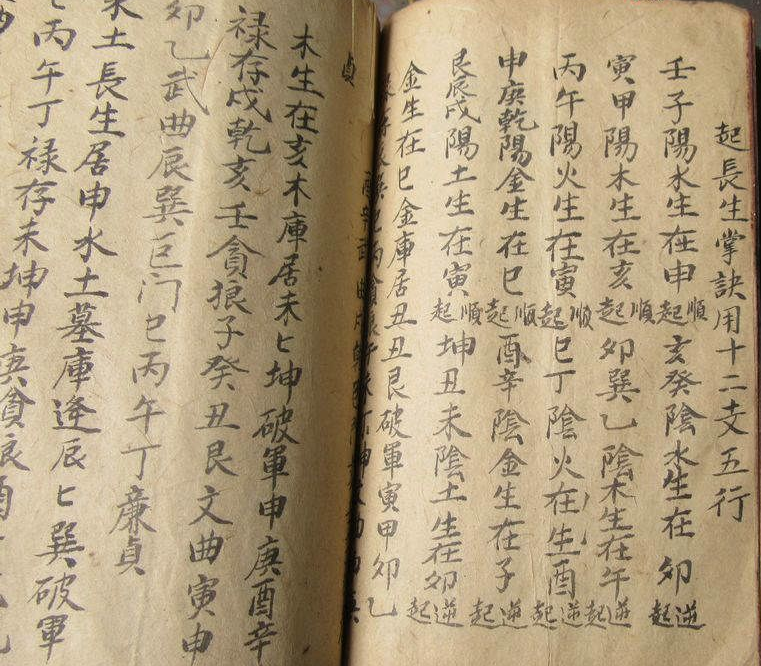 起長生掌訣用十二支五行
壬子陽水生在申順起亥癸陰水生在卯逆起
寅甲陽木生在亥順起卯巽乙陰木生在午逆起
丙午陽火生在寅順起巳丁陰火在生酉逆起
申庚乾陽金生在巳順起酉辛陰金生在子逆起
艮辰戌陽土生在寅順起坤丑未陰土生在卯逆起
金生在巳金庫居丑丑艮破軍寅甲卯乙
貞
木生在亥木庫居未匕坤破軍申庚酉辛
禄存戌乾亥壬貪狼子癸丑艮文曲寅申
卯乙武曲辰巽巨门巳丙午丁廉貞
水土長生居申水土墓庫逢辰匕巽破軍
丙午丁禄存未坤申庚貪狼酉